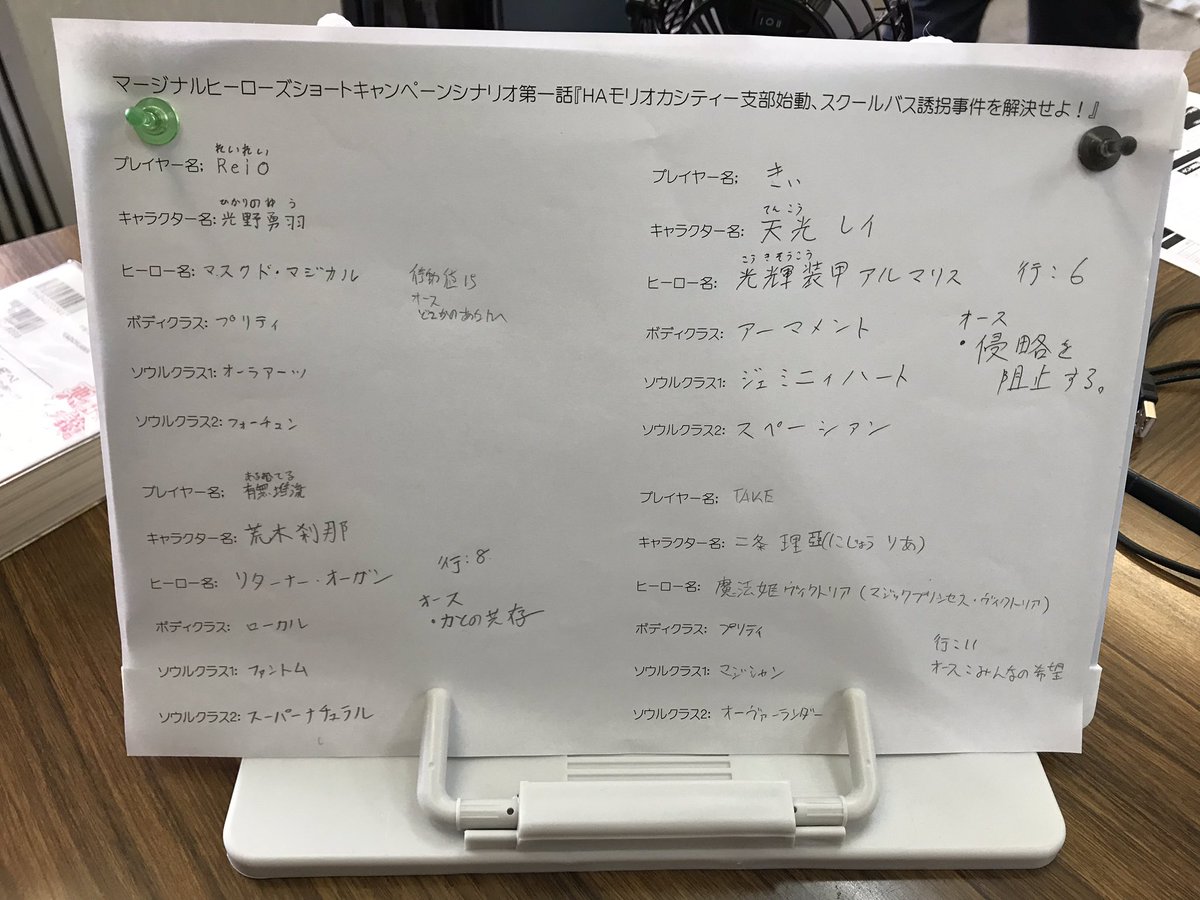 マージナルヒーローズショートキャンペーンシナリオ第一話『HAモリオカシティー支部始動、スクールバス誘拐事件を解決せよ！』
れいれい
プレイヤー名; ReiO
ひかりの ゆう
キャラクター名: 光野勇羽
ヒーロー名: マスクド・マジカル
行動値15
オース
どこかのあらたへ
ボディクラス: プリティ
ソウルクラス1: オーラアーツ
ソウルクラス2: フォーチュン
プレイヤー名; きぃ
てんこう
キャラクター名: 天光 レイ
こうきそうこう
ヒーロー名: 光輝装甲アルマリス
行:6
ボディクラス: アーマメント
オース
・侵略を
阻止する。
ソウルクラス1: ジェミニィハート
ソウルクラス2: スペーシアン
プレイヤー名;
キャラクター名: 荒木刹那
ヒーロー名: リターナー・オーガン
行:8
オース
・力との共存
ボディクラス: ローカル
ソウルクラス1: ファントム
ソウルクラス2: スーパーナチュラル
プレイヤー名; TAKE
キャラクター名: 二条 理亞(にじょう りあ)
ヒーロー名: 魔法姫ヴィクトリア(マジックプリンセス・ヴィクトリア)
ボディクラス: プリティ
行:11
オース:みんなの希望
ソウルクラス1: マジシャン
ソウルクラス2: オーヴァーランダー